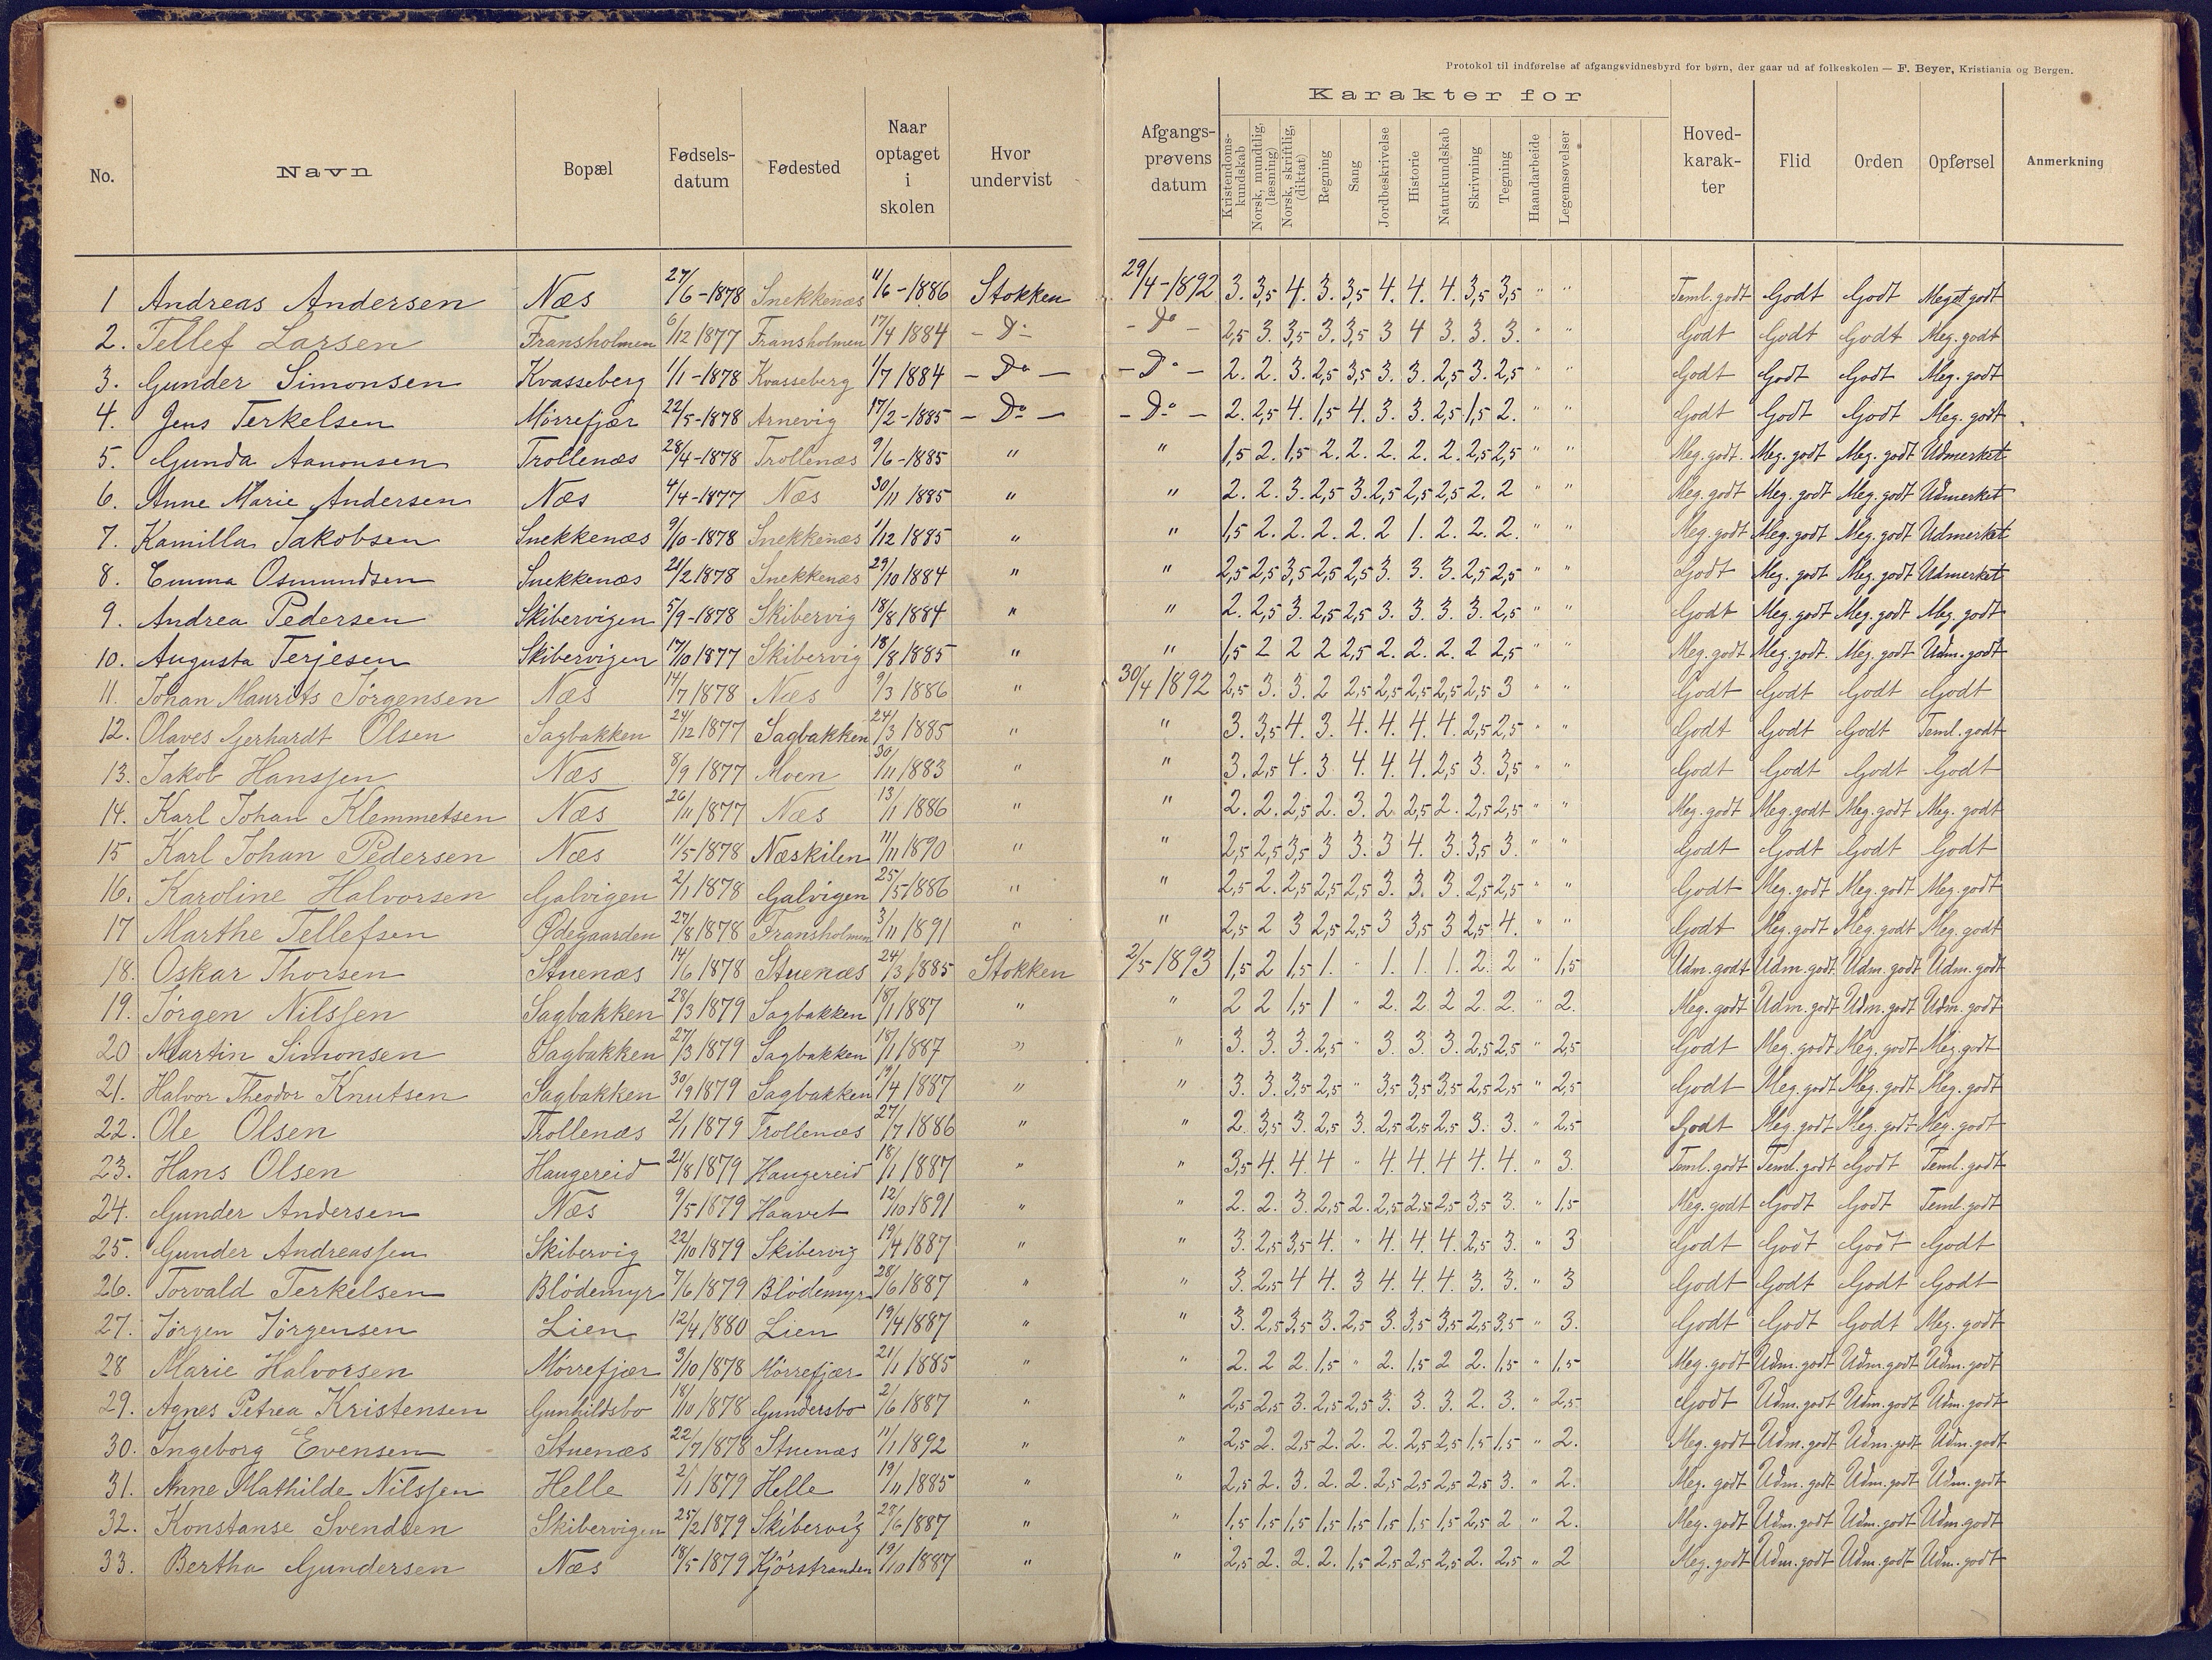 Protokol til indførelse af afgangsvidnesbyrd for børn, der gaar ud af folkeskolen — F. Beyer, Kristiania og Bergen.
No. Navn Bopæl Fødsels-datum Fødested Naar optaget i skolen Hvor undervist Afgangs-prøvens datum Karakter for Kristendoms-kundskab Norsk, mundtlig, (læsning) Norsk, skriftlig, (diktat) Regning Sang Jordbeskrivelse Historie Naturkundskab Skrivning Tegning Haandarbeide Legemsøvelser Hoved-karak-ter Flid Orden Opførsel Anmerkning
1 Andreas Andersen Næs 27/6-1878 Snekkenæs 11/6-1886 Stokken 29/4-1892 3. 3,5 4. 3. 3,5 4. 4. 4. 3,5 3,5 " " Teml. godt Godt Godt Meget godt
2. Tellef Larsen Fransholmen 6/12 1877 Fransholmen 17/4 1884 - Do - - Do - 2,5 3. 3,5 3. 3,5 3 4 3. 3. 3. " " Godt Godt Godt Meg. godt
3. Gunder Simonsen Kvasseberg 1/1-1878 Kvasseberg 1/7 1884 - Do - - Do - 2. 2. 3. 2,5 3,5 3. 3. 2,5 3. 2,5 " " Godt Godt Godt Meg. godt
4. Jens Terkelsen Mørrefjær 22/5-1878 Arnevig 17/2-1885 - Do - - Do - 2. 2,5 4. 1,5 4. 3. 3. 2,5 1,5 2. " " Godt Godt Godt Meg. godt
5. Gunda Aanonsen Trollenæs 28/4-1878 Trollenæs 9/6-1885 " " 1,5 2. 1,5 2. 2. 2. 2. 2. 2,5 2,5 " " Meg. godt. Meg. godt Meg. godt Udmerket
6. Anne Marie Andersen Næs 4/4-1877 Næs 30/11 1885 " " 2. 2. 3. 2,5 3. 2,5 2,5 2,5 2. 2 " " Meg. godt Meg. godt Meg. godt Udmerket
7. Kamilla Jakobsen Snekkenæs 9/10-1878 Snekkenæs 1/12 1885 " " 1,5 2. 2. 2. 2. 2 1. 2. 2. 2. " " Meg. godt Meg. godt Meg. godt Udmerket
8. Emma Osmundsen Snekkenæs 21/2 1878 Snekkenæs 29/10 1884 " " 2,5 2,5 3,5 2,5 2,5 3. 3. 3. 2,5 2,5 " " Godt Meg. godt Meg. godt Udmerket
9. Andrea Pedersen Skibervigen 5/9-1878 Skibervig 18/8 1884 " " 2. 2,5 3. 2,5 2,5 3. 3. 3. 3. 2,5 " " Godt Meg. godt Meg. godt Meg. godt
10. Augusta Terjesen Skibervigen 17/10 1877 Skibervig 18/8 1885 " " 1,5 2 2 2 2,5 2. 2. 2. 2 2,5 " " Meg. godt Meg. godt. Meg. godt Udm. godt
11. Johan Maurits Jørgensen Næs 14/7 1878 Næs 9/3 1886 " 30/4 1892 2,5 3. 3. 2 2,5 2,5 2,5 2,5 2,5 3 " " Godt Godt Godt Godt
12. Olaves Gerhardt Olsen Sagbakken 24/12 1877 Sagbakken 24/3 1885 " " 3. 3,5 4. 3. 4. 4. 4. 4. 2,5 2,5 " " Godt Godt Godt Teml. godt
13. Jakob Hanssen Næs 8/9 1877 Moen 30/11 1883 " " 3. 2,5 4. 3. 4. 4. 4. 2,5 3. 3,5 " " Godt Godt Godt Godt
14. Karl Johan Klemmetsen Næs 26/11 1877 Næs 13/1 1886 " " 2. 2. 2,5 2. 3. 2. 2,5 2. 2,5 2,5 " " Meg. godt Meg. godt Meg. godt Meg. godt
15 Karl Johan Pedersen Næs 11/5 1878 Næskilen 11/11 1890 " " 2,5 2,5 3,5 3 3. 3 4. 3. 3,5 3. " " Godt Godt Godt Godt
16. Karoline Halvorsen Galvigen 2/1 1878 Galvigen 25/5 1886 " " 2,5 2. 2,5 2,5 2,5 3. 3. 3. 2,5 2,5 " " Godt Meg. godt Meg. godt Meg. godt
17 Marthe Tellefsen Ødegaarden 27/8 1878 Fransholmen 3/11 1891 " " 2,5 2 3 2,5 2,5 3 3,5 3 2,5 4. " " Godt Meg. godt Meg. godt Meg. godt
18. Oskar Thorsen Stuenæs 14/6 1878 Stuenæs 24/3 1885 Stokken 2/5 1893 1,5 2 1,5 1. " 1. 1. 1. 2. 2 " 1,5 Udm. godt Udm. godt Udm. godt Udm. godt
19. Jørgen Nilssen Sagbakken 28/3 1879 Sagbakken 18/1 1887 " " 2 2 1,5 1 " 2. 2 2 2. 2. " 2. Meg. godt Udm. godt Udm. godt Udm. godt
20 Martin Simonsen Sagbakken 27/3 1879 Sagbakken 18/1 1887 " " 3. 3. 3. 2,5 " 3. 3. 3. 2,5 2,5 " 2,5 Godt Meg. godt Meg. godt Meg. godt
21. Halvor Theodor Knutsen Sagbakken 30/9 1879 Sagbakken 19/4 1887 " " 3. 3. 3,5 2,5 " 3,5 3,5 3,5 2,5 2,5 " 2,5 Godt Meg. godt Meg. godt Meg. godt
22. Ole Olsen Trollenæs 2/1 1879 Trollenæs 27/7 1886 " " 2. 3,5 3. 2,5 3. 2,5 2,5 2,5 3. 3. " 2,5 Godt Meg. godt Meg. godt Meg. godt
23. Hans Olsen Haugereid 21/8 1879 Haugereid 18/1 1887 " " 3,5 4. 4. 4 " 4. 4. 4 4. 4. " 3. Teml. godt Teml. godt Godt Teml. godt
24. Gunder Andersen Næs 9/5 1879 Haavet 12/10 1891 " " 2. 2. 3. 2,5 2. 2,5 2,5 2,5 3,5 3. " 1,5 Meg. godt Godt Godt Teml. godt
25. Gunder Andreassen Skibervig 22/10 1879 Skibervig 19/4 1887 " " 3. 2,5 3,5 4. " 4. 4. 4. 2,5 3. " 3 Godt Godt Godt Godt
26. Torvald Terkelsen Blødemyr 7/6 1879 Blødemyr 28/6 1887 " " 3. 2,5 4 4. 3 4. 4. 4. 3. 3. " 3 Godt Godt Godt Godt
27. Jørgen Jørgensen Lien 12/4 1880 Lien 19/4 1887 " " 3. 2,5 3,5 3. 2,5 3. 3,5 3,5 2,5 3,5 " 3. Godt Godt Godt Meg. godt
28 Marie Halvorsen Mørrefjær 3/10 1878 Mørrefjær 21/1 1885 " " 2. 2 2. 1,5 " 2. 1,5 2 2. 1,5 " 1,5 Meg. godt Udm. godt Udm. godt Udm. godt
29. Agnes Petrea Kristensen Gunhildsbo 18/10 1878 Gundersbo 2/6 1887 " " 2,5 2,5 3. 2,5 2,5 3. 3. 3. 2. 3. " 2,5 Godt Udm. godt Udm. godt Udm. godt
30. Ingeborg Evensen Stuenæs 22/7 1878 Stuenæs 11/1 1892 " " 2,5 2. 2,5 2. 2. 2. 2,5 2,5 1,5 1,5 " 2. Meg. godt Udm. godt Udm. godt Udm. godt
31. Anne Mathilde Nilssen Helle 2/1 1879 Helle 19/11 1885 " " 2,5 2. 3. 2. 2. 2,5 2,5 2,5 2,5 3. " 2. Meg. godt Udm. godt Udm. godt Udm. godt
32. Konstanse Svendsen Skibervigen 25/2 1879 Skibervig 28/6 1887 " " 1,5 1,5 1,5 1,5 1,5 1,5 1,5 1,5 2,5 2 " 2. Meg. godt Udm. godt Udm. godt Udm. godt
33. Bertha Gundersen Næs 18/5 1879 Kjørstranden 19/10 1887 " " 2,5 2. 2. 2. 1,5 2,5 2,5 2,5 2. 2,5 " 2 Meg. godt Udm. godt Udm. godt Udm. godt